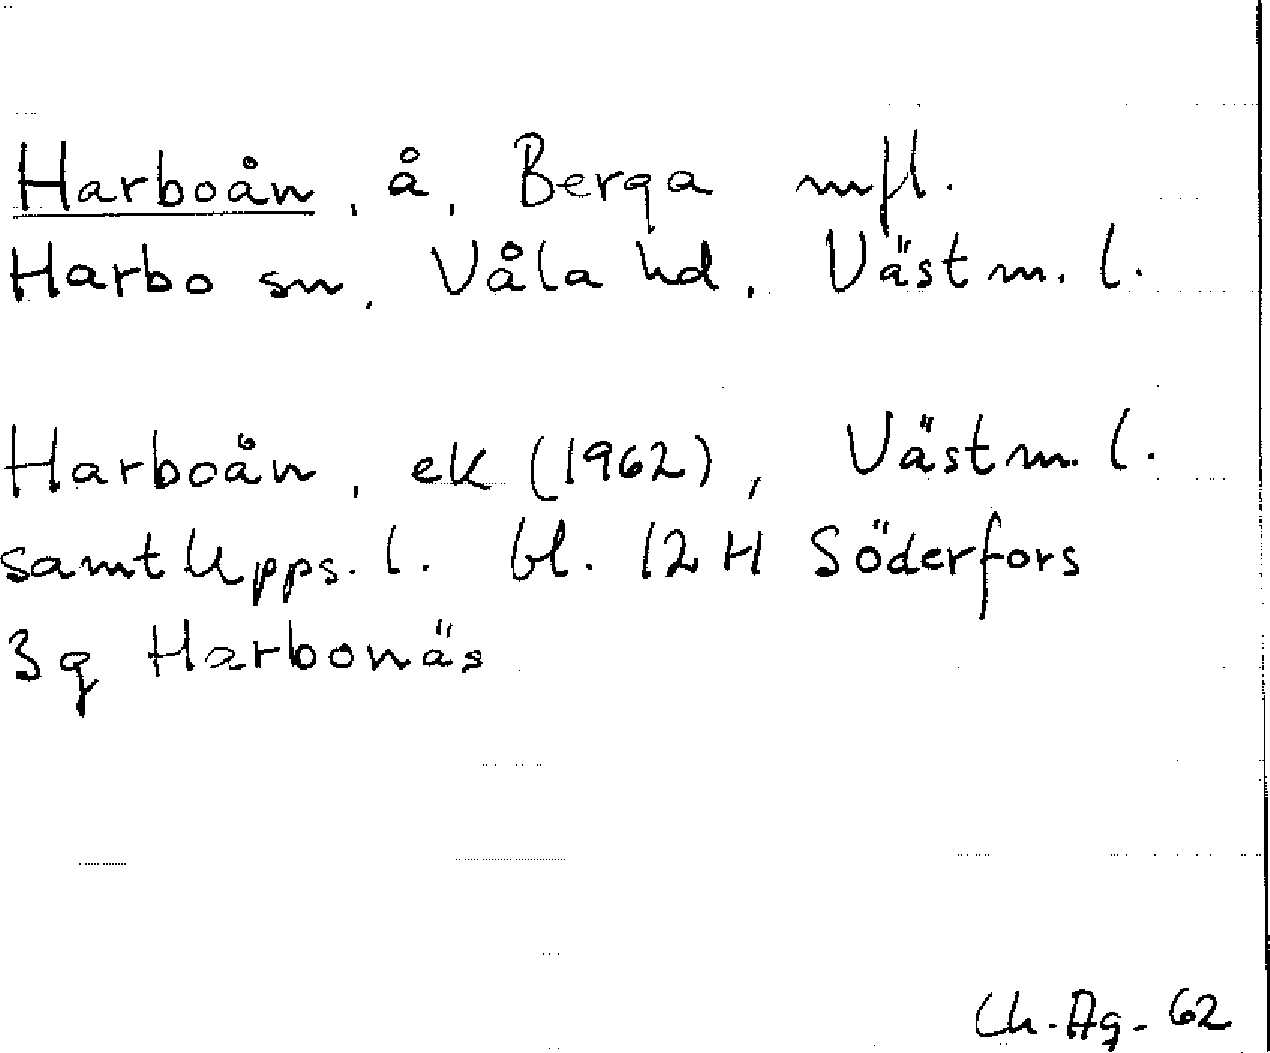 Harboån, å, Berga mfl.
Harbo sn, Våla hd, Västm. l.
Harboån, ek (1962), Västm. l.
samt Upps. l. bl. 12 H Söderfors
3g Harbonäs
Ch. Ag. 62